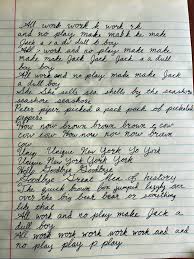 All work work & work rk
and no play make mak k make
Jack a a d dull b boy
All work and no play make make
make make Jack Jack Jack a a dull
boy boy
All work and no play make make Jack
a dull boy
She She sells sea shells by the seasho
seashore seashore
Peter piper picked a pack pack of pickeled
peppers
How now brown brown brown cow
cow cow How now now brown
cow
Unique New York Yo York
Unique New York York York
Hello Goodbye Goodbye
Goodbye Great Men of history
The quick brown fox jumped
over the big best bear or something
like that
All work and no play make Jack a
dull boy
All work work work work work and and
no play play p play